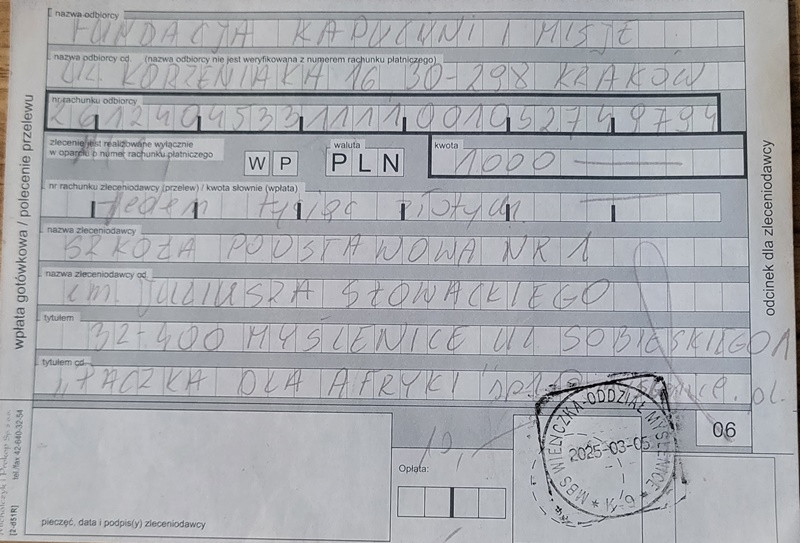 nazwa odbiorcy
FUNDACJA KAPUCYNI I MISJE
nazwa odbiorcy cd. (nazwa odbiorcy nie jest weryfikowana z numerem rachunku płatniczego)
UL KORZENIAKA 16 30-298 KRAKÓW
nr rachunku odbiorcy
26124045331111001052749794
zlecenie jest realizowane wyłącznie
w oparciu o numer rachunku płatniczego
W P
waluta
PLN
kwota
1000
nr rachunku zleceniodawcy (przelew) / kwota słownie (wpłata)
jeden tysiąc złotych
nazwa zleceniodawcy
SZKOŁA PODSTAWOWA NR 1
nazwa zleceniodawcy cd.
im. JULIUSZA SŁOWACKIEGO
tytułem
32-400 MYŚLENICE UL SOBIESKIEGO 1
tytułem cd.
DLA AFRYKI
wpłata gotówkowa / polecenie przelewu
odcinek dla zleceniodawcy
06
MBS WIELICZKA-ODDZIAŁ MYŚLENICE
2025-03-05
10,-
Opłata:
pieczęć, data i podpis(y) zleceniodawcy
tel./fax 42-640-32-54